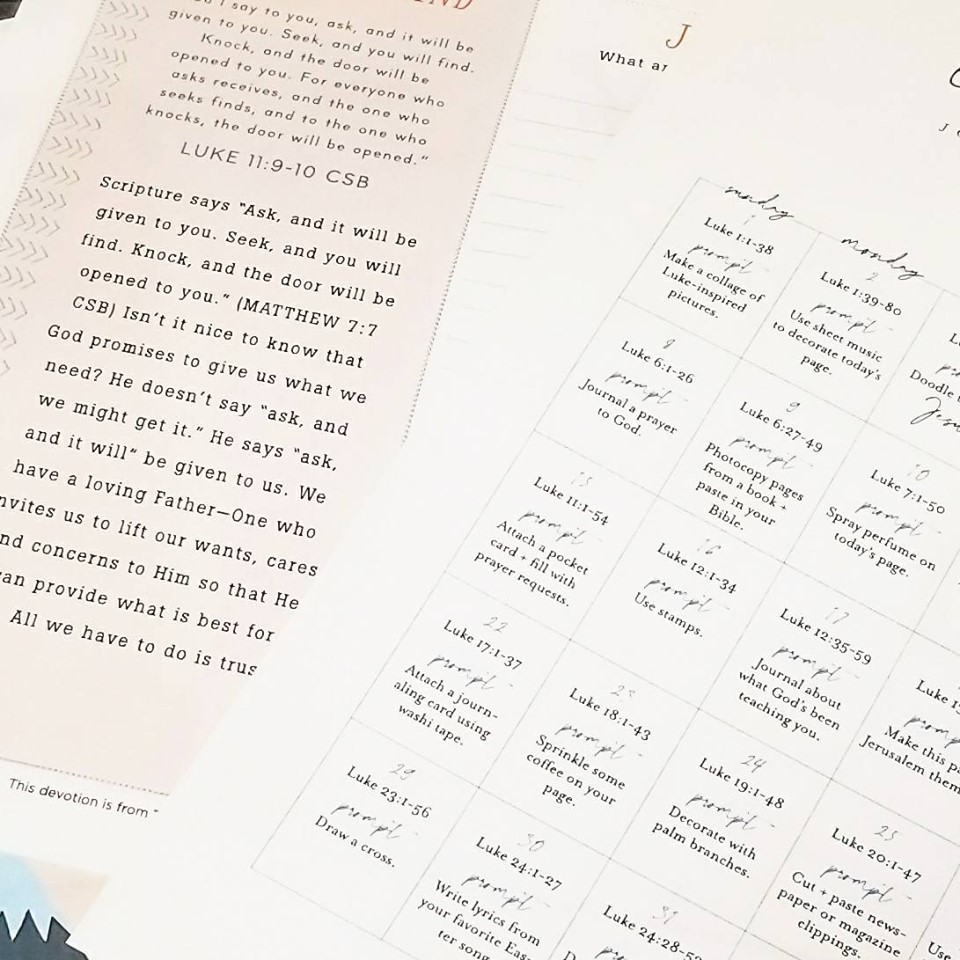 I say to you, ask, and it will be
given to you. Seek, and you will find.
Knock, and the door will be
opened to you. For everyone who
asks receives, and the one who
seeks finds, and to the one who
knocks, the door will be opened."
LUKE 11:9-10 CSB
Scripture says "Ask, and it will be
given to you. Seek, and you will
find. Knock, and the door will be
opened to you." (MATTHEW 7:7
CSB) Isn't it nice to know that
God promises to give us what we
need? He doesn't say "ask, and
we might get it." He says "ask,
and it will" be given to us. We
have a loving Father—One who
nvites us to lift our wants, cares
nd concerns to Him so that He
an provide what is best for
All we have to do is trus
This devotion is from "
J
What ar
sunday
1
Luke 1:1-38
prompt -
Make a collage of
Luke-inspired
pictures.
monday
2
Luke 1:39-80
prompt -
Use sheet music
to decorate today's
page.
Doodle
Jesu
8
Luke 6:1-26
prompt -
Journal a prayer
to God.
9
Luke 6:27-49
prompt -
Photocopy pages
from a book +
paste in your
Bible.
10
Luke 7:1-50
prompt -
Spray perfume on
today's page.
15
Luke 11:1-54
prompt -
Attach a pocket
card + fill with
prayer requests.
16
Luke 12:1-34
prompt -
Use stamps.
17
Luke 12:35-59
prompt -
Journal about
what God's been
teaching you.
Luke 1
Make this pa
Jerusalem them
22
Luke 17:1-37
prompt -
Attach a journ-
aling card using
washi tape.
23
Luke 18:1-43
prompt -
Sprinkle some
coffee on your
page.
24
Luke 19:1-48
prompt -
Decorate with
palm branches.
25
Luke 20:1-47
prompt -
Cut + paste news-
paper or magazine
clippings.
Use
29
Luke 23:1-56
prompt -
Draw a cross.
30
Luke 24:1-27
prompt -
Write lyrics from
your favorite Eas-
ter song
31
Luke 24:28-5